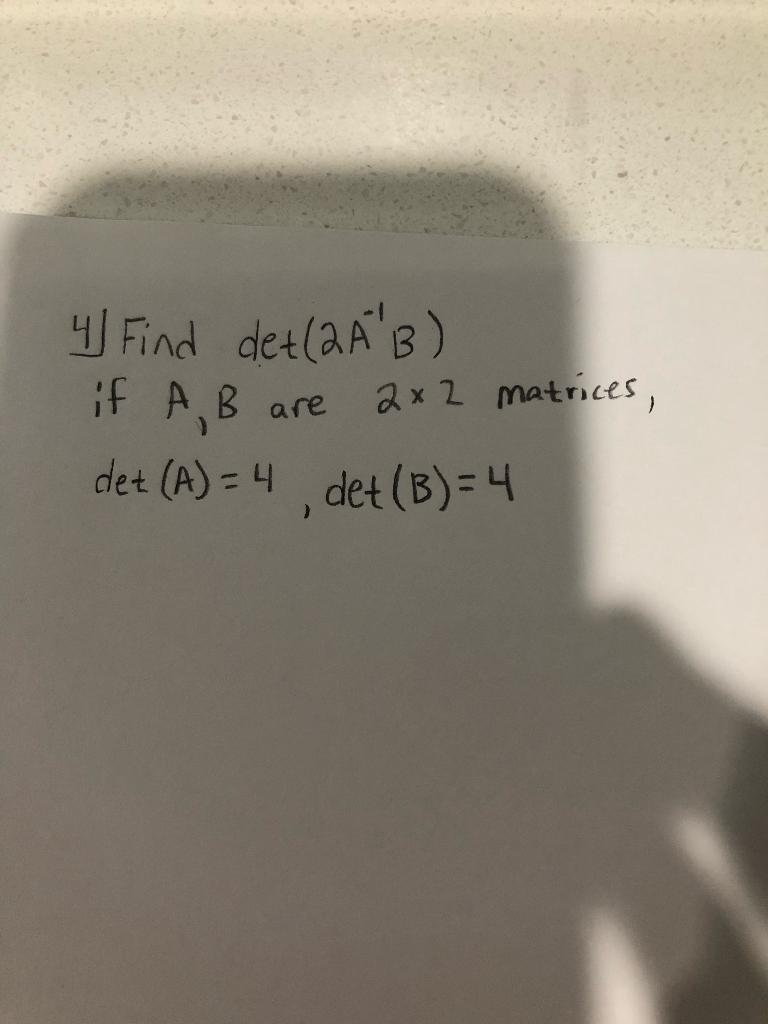 4) Find det(2A⁻¹B)
if A, B are 2x2 matrices,
det (A) = 4 , det (B) = 4